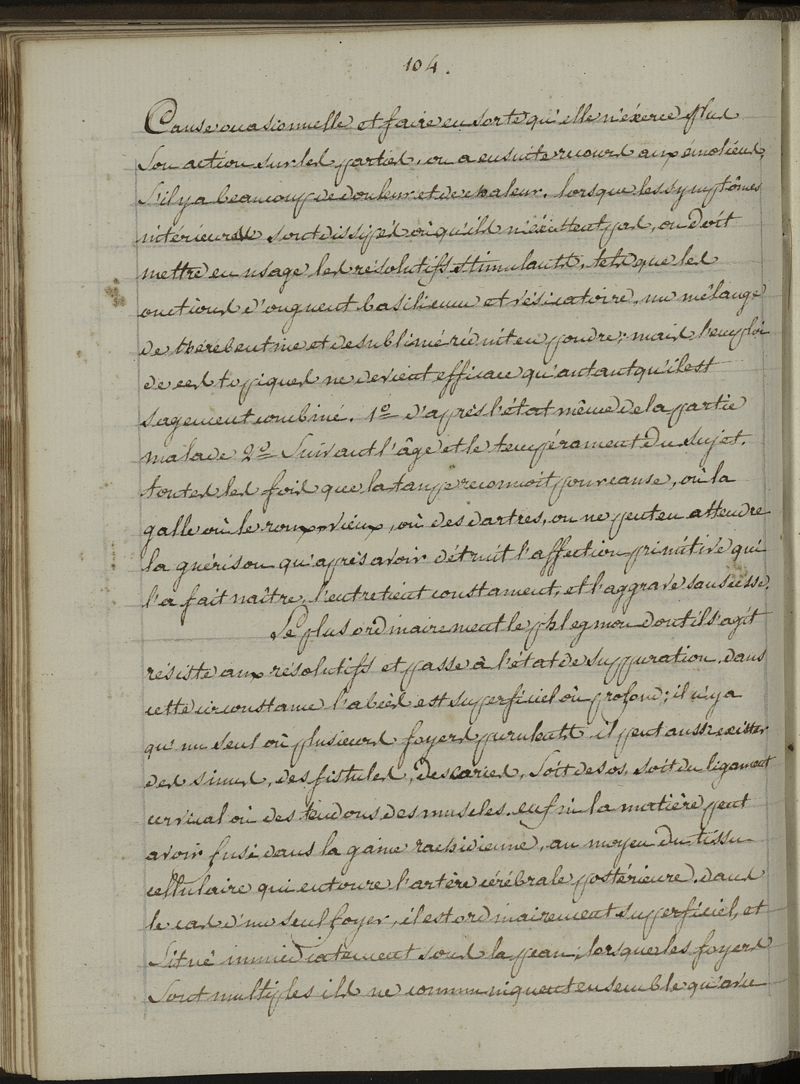 104.
Cause occasionnelle et faire en sorte qu'elle n'éxerce plus
Son action sur les parties, on a ensuite recours aux émoliens,
S'il y a beaucoup de douleur et de chaleur. lorsque les symptômes
intérieurs sont dissipés où qu'ils n'éxistent pas, on doit
mettre en usage les résolutifs stimulants, tels que les
onctions d'onguent basilicum et vésicatoire, un mêlange
de thérébentine et de sublimé réduit en poudre; mais l'emploi
de ces topiques ne devient efficace qu'autant qu'il est
sagement combiné. 1o d'après l'état même de la partie
malade 2o Suivant l'âge et le tempérament du sujet.
toutes les fois que la taupe reconnoit pour cause, où la
galle où le roux-vieux, où des dartres, on ne peut en attendre
la guérison qu'après avoir détruit l'affection primitive qui
l'a fait naître, l'entretient constament, et l'aggrave sans cesse.
Le plus ordinairement le phlegmon dont il s'agit
résiste aux résolutifs et passe à l'état de suppuration. dans
cette circonstance l'abcès est superficiel où profond; il n'y a
qu'un seul où plusieurs foyers purulents il peut aussi exister
des sinus, des fistules, des caries, Soit des os, soit du ligament
cervical où des tendons des muscles. enfin la matière peut
avoir fusé dans la gaine rachidienne, au moyen du tissu
cellulaire qui entoure l'artère cérébrale postérieure. dans
le cas d'un seul foyer, il est ordinairement superficiel, et
Situé immédiatement sous la peau; lorsque les foyers
Sont multiples ils ne communiquent ensemble qu'avec